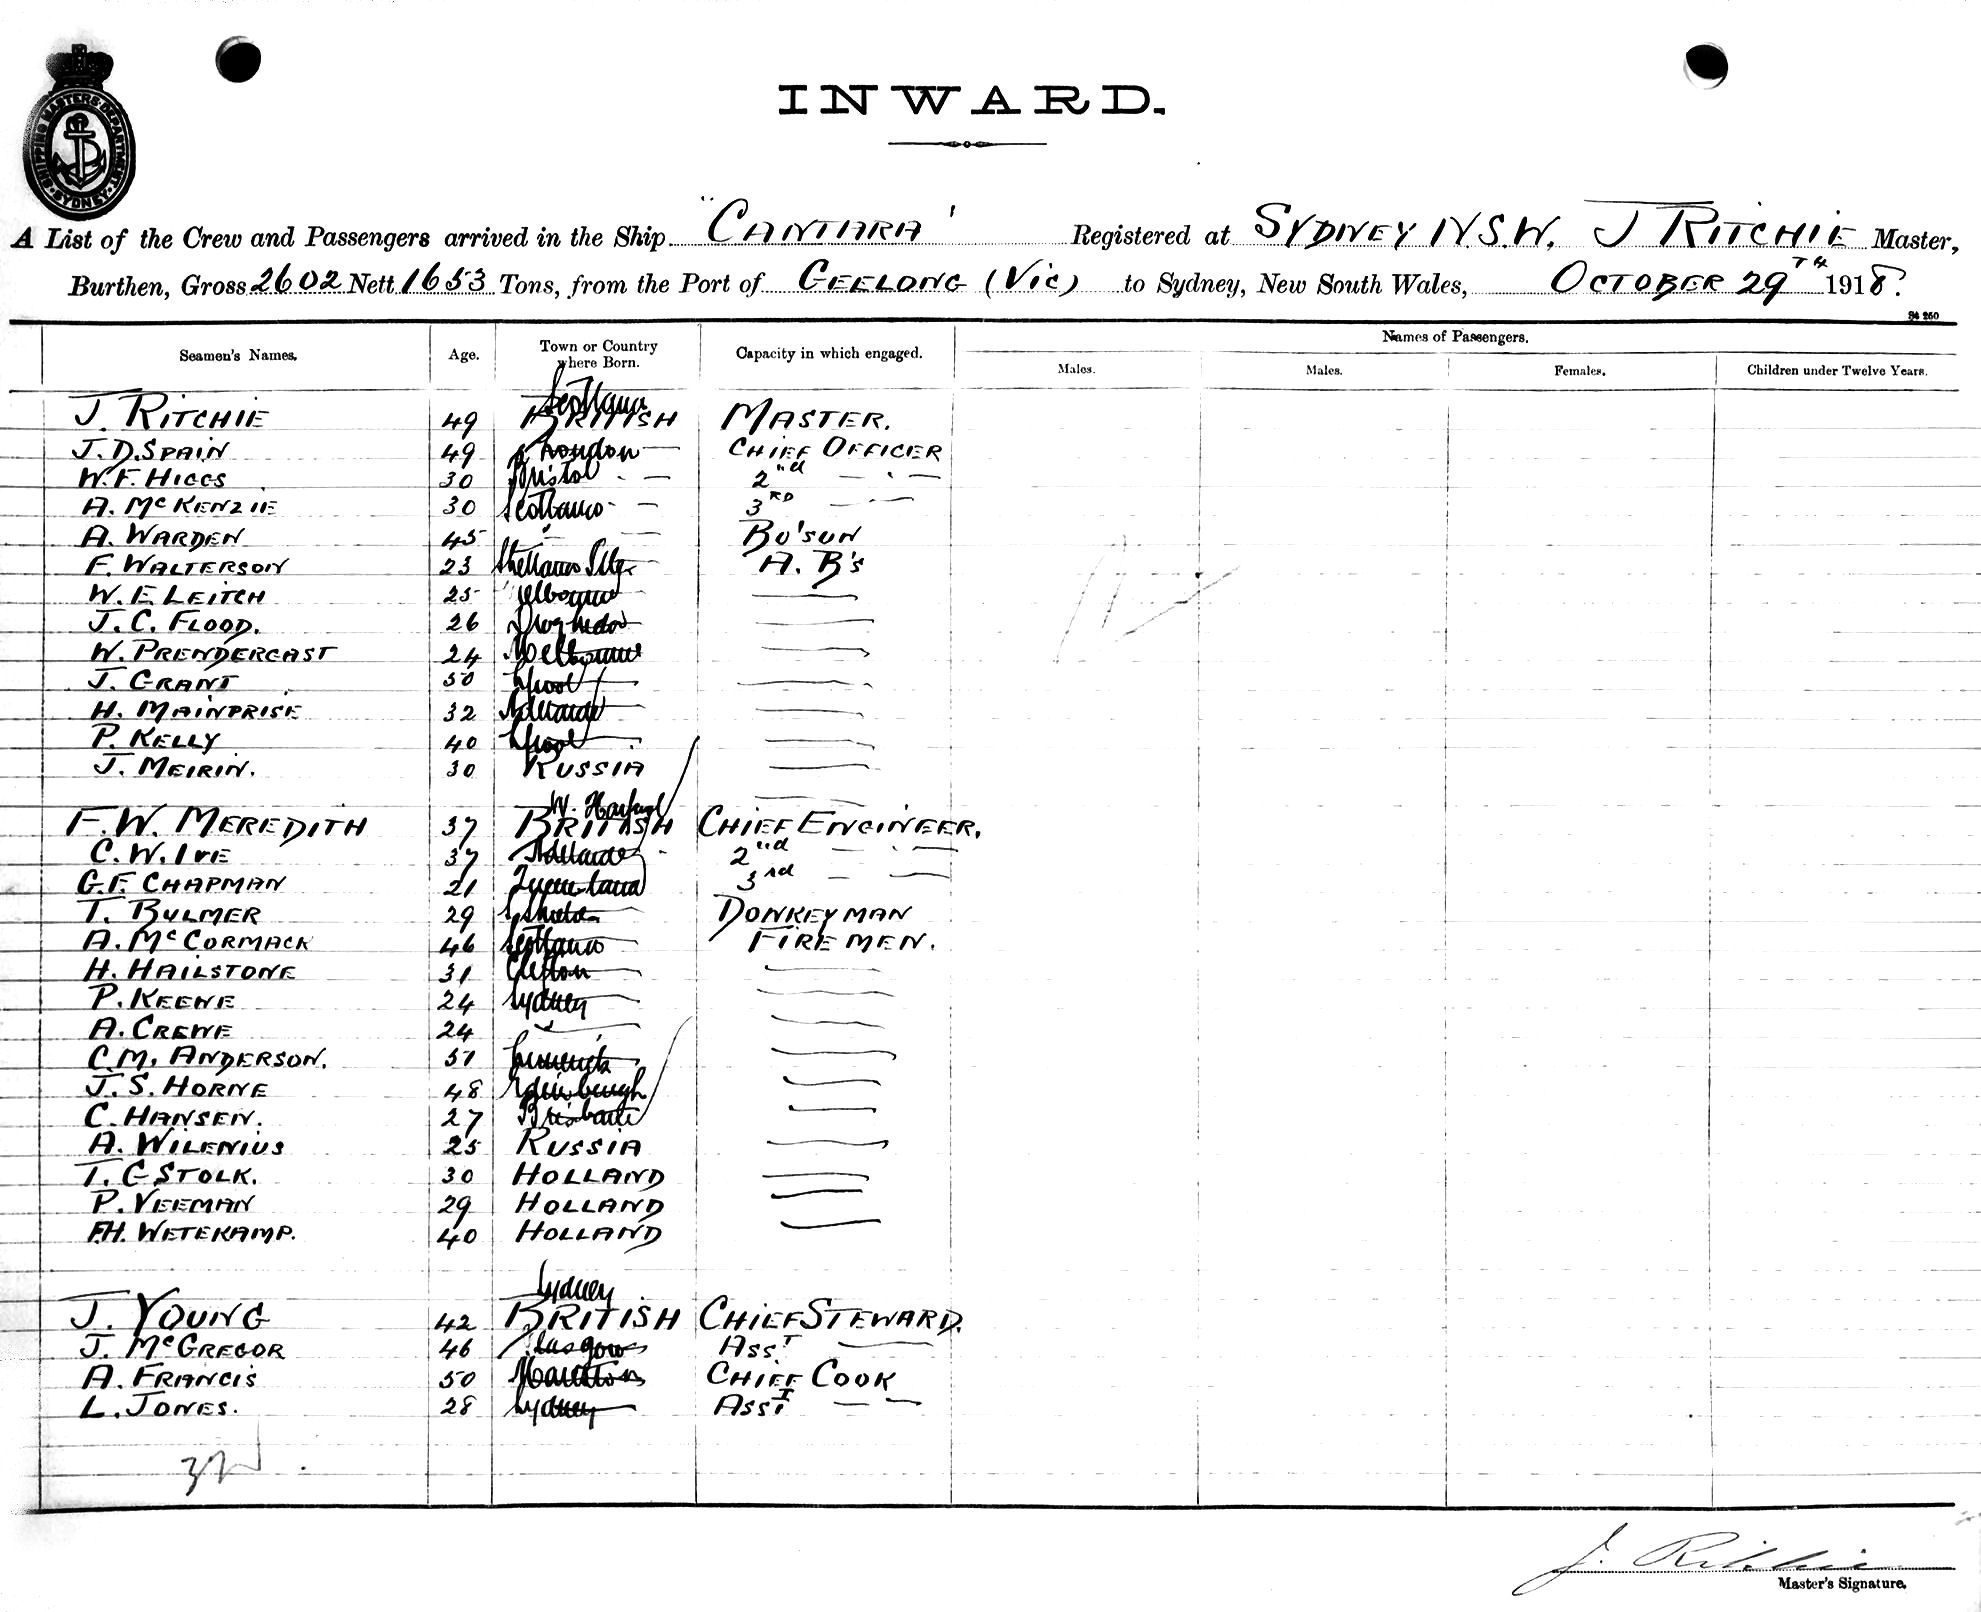 SHIPPING MASTERS DEPARTMENT
SYDNEY
INWARD.
A List of the Crew and Passengers arrived in the Ship "CANTARA" Registered at SYDNEY N.S.W. J RITCHIE Master,
Burthen, Gross 2602 Nett 1653 Tons, from the Port of GEELONG (VIC) to Sydney, New South Wales, OCTOBER 29TH 1918.
St 250
Seamen's Names. Age. Town or Country where Born. Capacity in which engaged. Names of Passengers.
Males. Males. Females. Children under Twelve Years.
Scotland
J. RITCHIE 49 BRITISH MASTER.
J. D. SPAIN 49 London CHIEF OFFICER
W. F. HIGGS 30 Bristol 2nd — " —
A. McKENZIE 30 Scotland 3RD — " —
A. WARDEN 45 " BO'SUN
F. WALTERSON 23 A. B's
W. E LEITCH 25 Melbourne
J. C. FLOOD. 26 Drogheda
W. PRENDERGAST 24 Melbourne
J. GRANT 50 L'pool
H. MAINPRISE 32 Adelaide
P. KELLY 40 L'pool
J. MEIRIN. 30 RUSSIA
F. W. MEREDITH 37 BRITISH CHIEF ENGINEER.
C. W. IVE 37 Adelaide 2nd — " —
G. F. CHAPMAN 21 Queensland 3rd — " —
T. BULMER 29 S Shields DONKEYMAN
A. McCORMACK 46 Scotland FIREMEN.
H. HAILSTONE 31 Clifton
P. KEENE 24 Sydney
A. CREWE 24 "
C. M. ANDERSON. 51
J. S. HORNE 48 Edinburgh
C. HANSEN. 27 Brisbane
A. WILENIUS 25 RUSSIA
T. G STOLK. 30 HOLLAND
P. VEEMAN 29 HOLLAND
F.H. WETEKAMP. 40 HOLLAND
Sydney
J. YOUNG 42 BRITISH CHIEF STEWARD.
J. McGREGOR 46 Glasgow ASST
A. FRANCIS 50 CHIEF COOK
L. JONES. 28 Sydney ASST — —
J. Ritchie
Master's Signature.